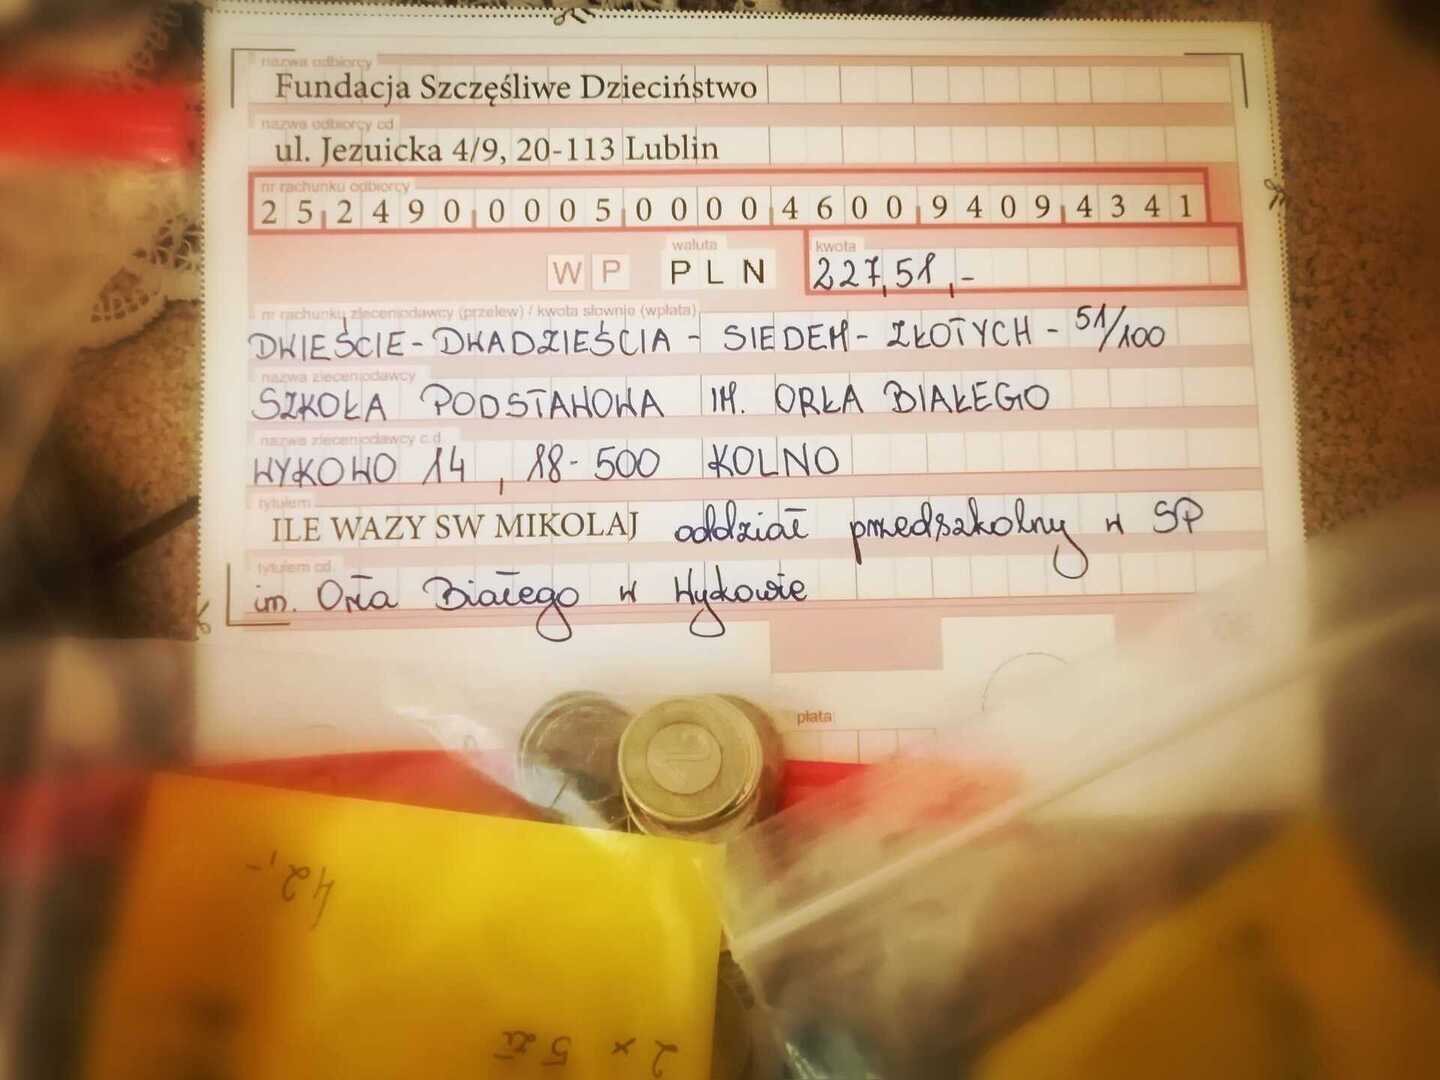 nazwa odbiorcy
Fundacja Szczęśliwe Dzieciństwo
nazwa odbiorcy cd.
ul. Jezuicka 4/9, 20-113 Lublin
nr rachunku odbiorcy
25 2490 0005 0000 4600 9409 4341
waluta kwota
W P PLN 227,51,-
nr rachunku zleceniodawcy (przelew) / kwota słownie (wpłata)
DWIEŚCIE - DWADZIEŚCIA - SIEDEM - ZŁOTYCH - 51/100
nazwa zleceniodawcy
SZKOŁA PODSTAWOWA IM. ORŁA BIAŁEGO
nazwa zleceniodawcy c.d.
WYKOWO 14, 18-500 KOLNO
tytułem
ILE WAZY SW MIKOLAJ oddział przedszkolny w SP
tytułem cd.
im. Orła Białego w Wykowie
płata:
42,-
2 x 5 zł